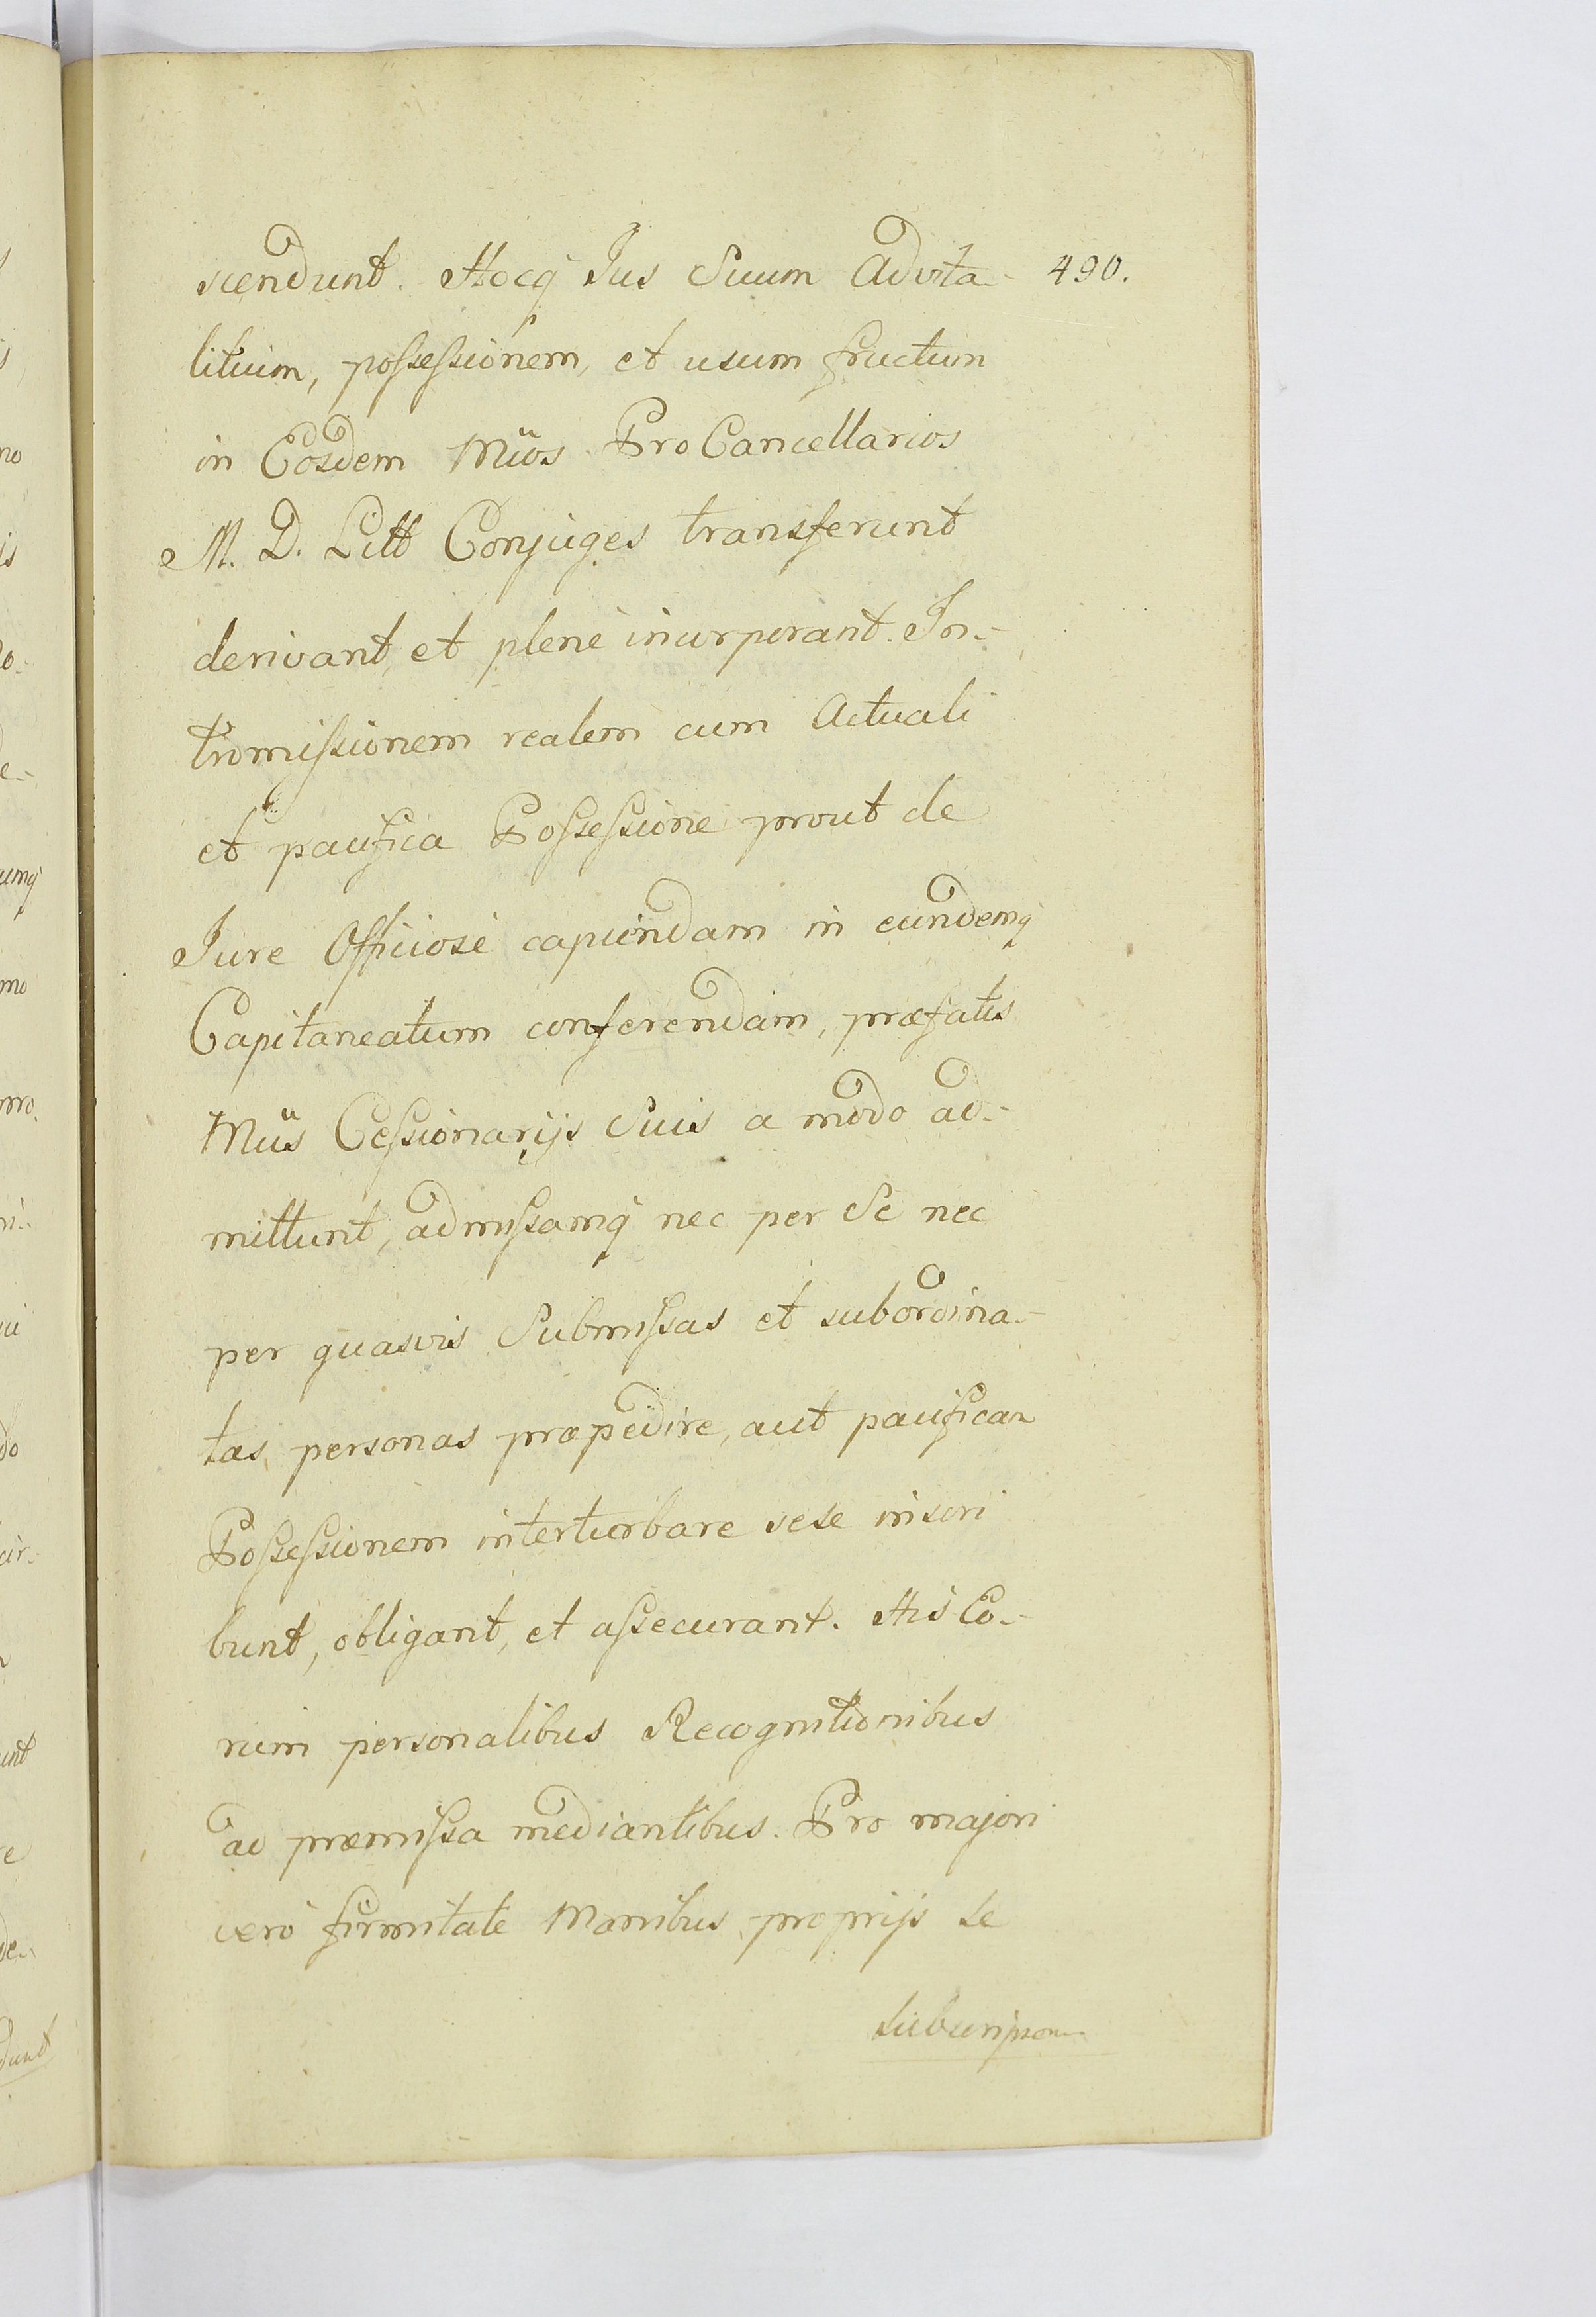 scendunt. Hocq Jus Suum Advita- 490.
litium, possessionem, et usum fructum
in Eosdem Mños ProCancellarios
M. D. Litt Conjuges transferunt
derivant, et plenè incorporant. In-
tromissionem realem cum Actuali
et pacifica Possessione prout de
Jure Officiosè capiendam in eundemq
Capitaneatum conferendam, præfatis
Mñis Cessionarijs Suis a modo ad-
mittunt, admissamq nec per Se nec
per quasvis Submissas et subordina-
tas, personas præpedire, aut pacificam
Possessionem interturbare sese inscri
bunt, obligant, et assecurant. His Eo-
rum personalibus Recognitionibus
ad præmissa mediantibus. Pro majori
verò firmitate Manibus proprijs se
subscripse-
no
is
umq
mo
do
unt
dunt